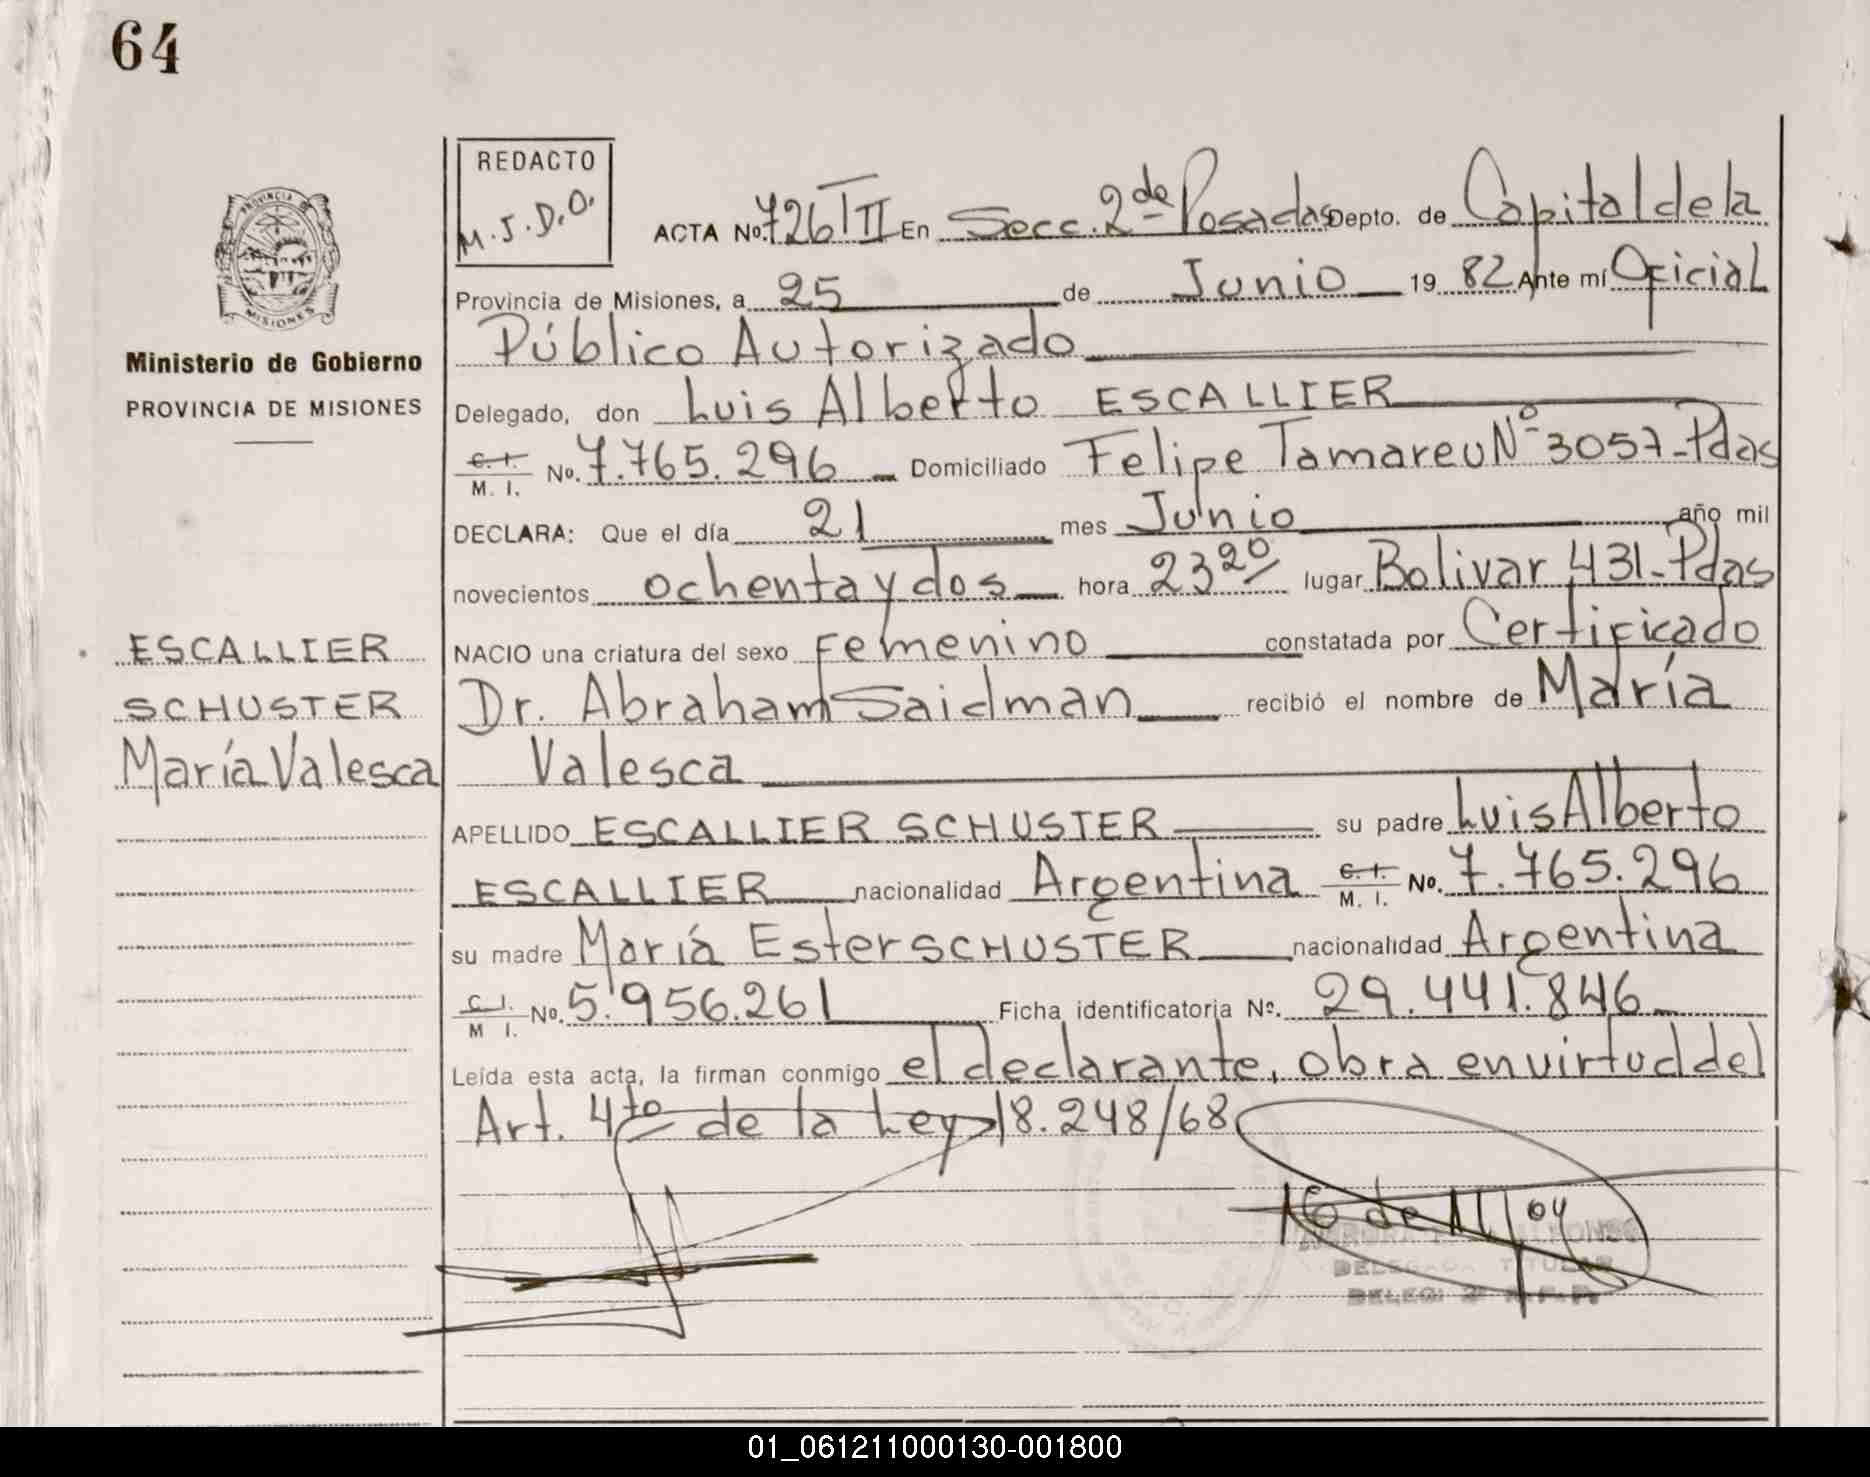 64
REDACTO
M.J.D.O.
ACTA No. 726 TIII En Secc. 2da Posadas Depto. de Capital de la
Provincia de Misiones, a 25 de Junio 19 82 Ante mí Oficial
Público Autorizado
Delegado, don Luis Alberto ESCALLIER
C. I. / M. I. No. 7.765.296 Domiciliado Felipe Tamareu Nº 3057-Pdas
DECLARA: Que el día 21 mes Junio año mil
novecientos ochenta y dos hora 23 20 lugar Bolivar 431-Pdas
NACIO una criatura del sexo Femenino constatada por Certificado
Dr. Abraham Saidman recibió el nombre de María
Valesca
APELLIDO ESCALLIER SCHUSTER su padre Luis Alberto
ESCALLIER nacionalidad Argentina C. I. / M. I. No. 7.765.296
su madre María Ester SCHUSTER nacionalidad Argentina
C. I. / M. I. No. 5.956.261 Ficha identificatoria Nº. 29.441.846
Leída esta acta, la firman conmigo el declarante, obra en virtud del
Art. 4to de la Ley 18.248/68
DELEGADA TITULAR
PROVINCIA DE
MISIONES
Ministerio de Gobierno
PROVINCIA DE MISIONES
ESCALLIER
SCHUSTER
María Valesca
01_061211000130-001800